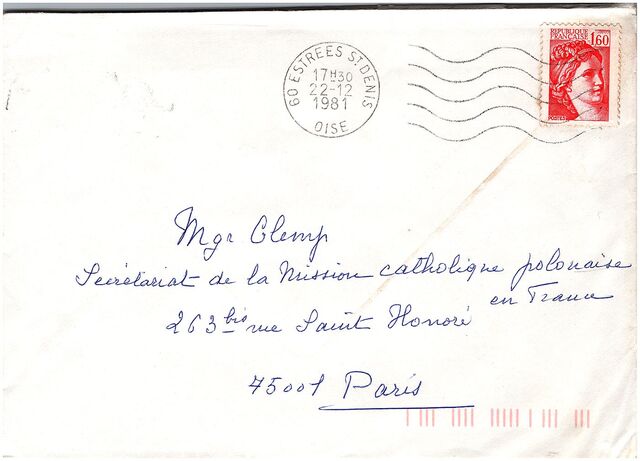 60 ESTREES ST DENIS
17H30
22-12
1981
OISE
REPUBLIQUE
FRANÇAISE
1,60
POSTES
Mgr Glemp
Secrétariat de la Mission catholique polonaise
en France
263 bis rue Saint Honoré
75001 Paris